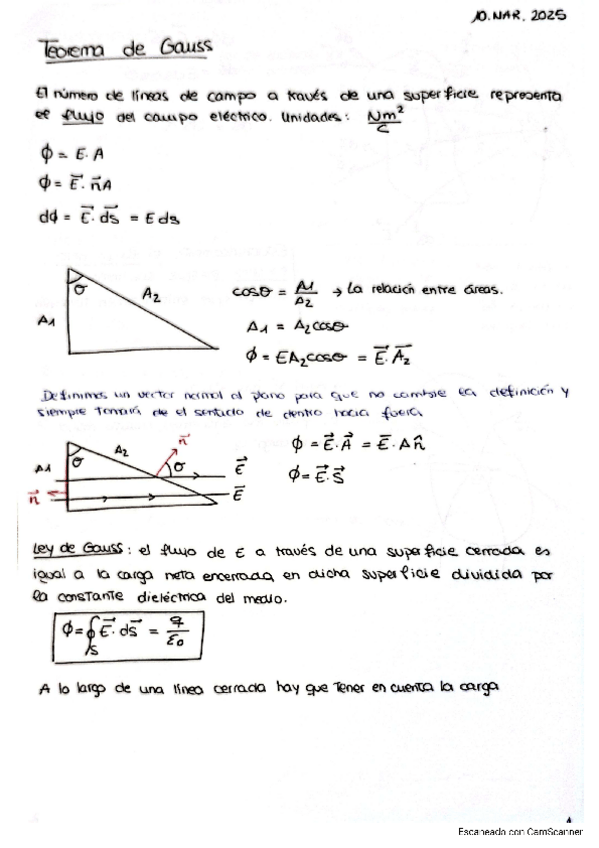 10. MAR. 2025
Teorema de Gauss
El número de líneas de campo a través de una superficie representa
el flujo del campo eléctrico. Unidades: Nm²/C
ϕ = E. A
ϕ = E⃗. n⃗A
dϕ = E⃗. ds⃗ = E ds
σ
A1
A2
cosθ = A1/A2 → La relación entre áreas.
A1 = A2cosθ
ϕ = EA2cosθ = E⃗. A⃗2
Definimos un vector normal al plano para que no cambie la definición y
siempre tomará de el sentido de dentro hacia fuera
A1
σ
A2
n⃗
σ
E⃗
n⃗
E⃗
ϕ = E⃗. A⃗ = E⃗. A n̂
ϕ = E⃗. S⃗
Ley de Gauss: el flujo de E a través de una superficie cerrada es
igual a la carga neta encerrada en dicha superficie dividida por
la constante dieléctrica del medio.
ϕ = ∮S E⃗. ds⃗ = q/ε0
A lo largo de una línea cerrada hay que tener en cuenta la carga
1
Escaneado con CamScanner